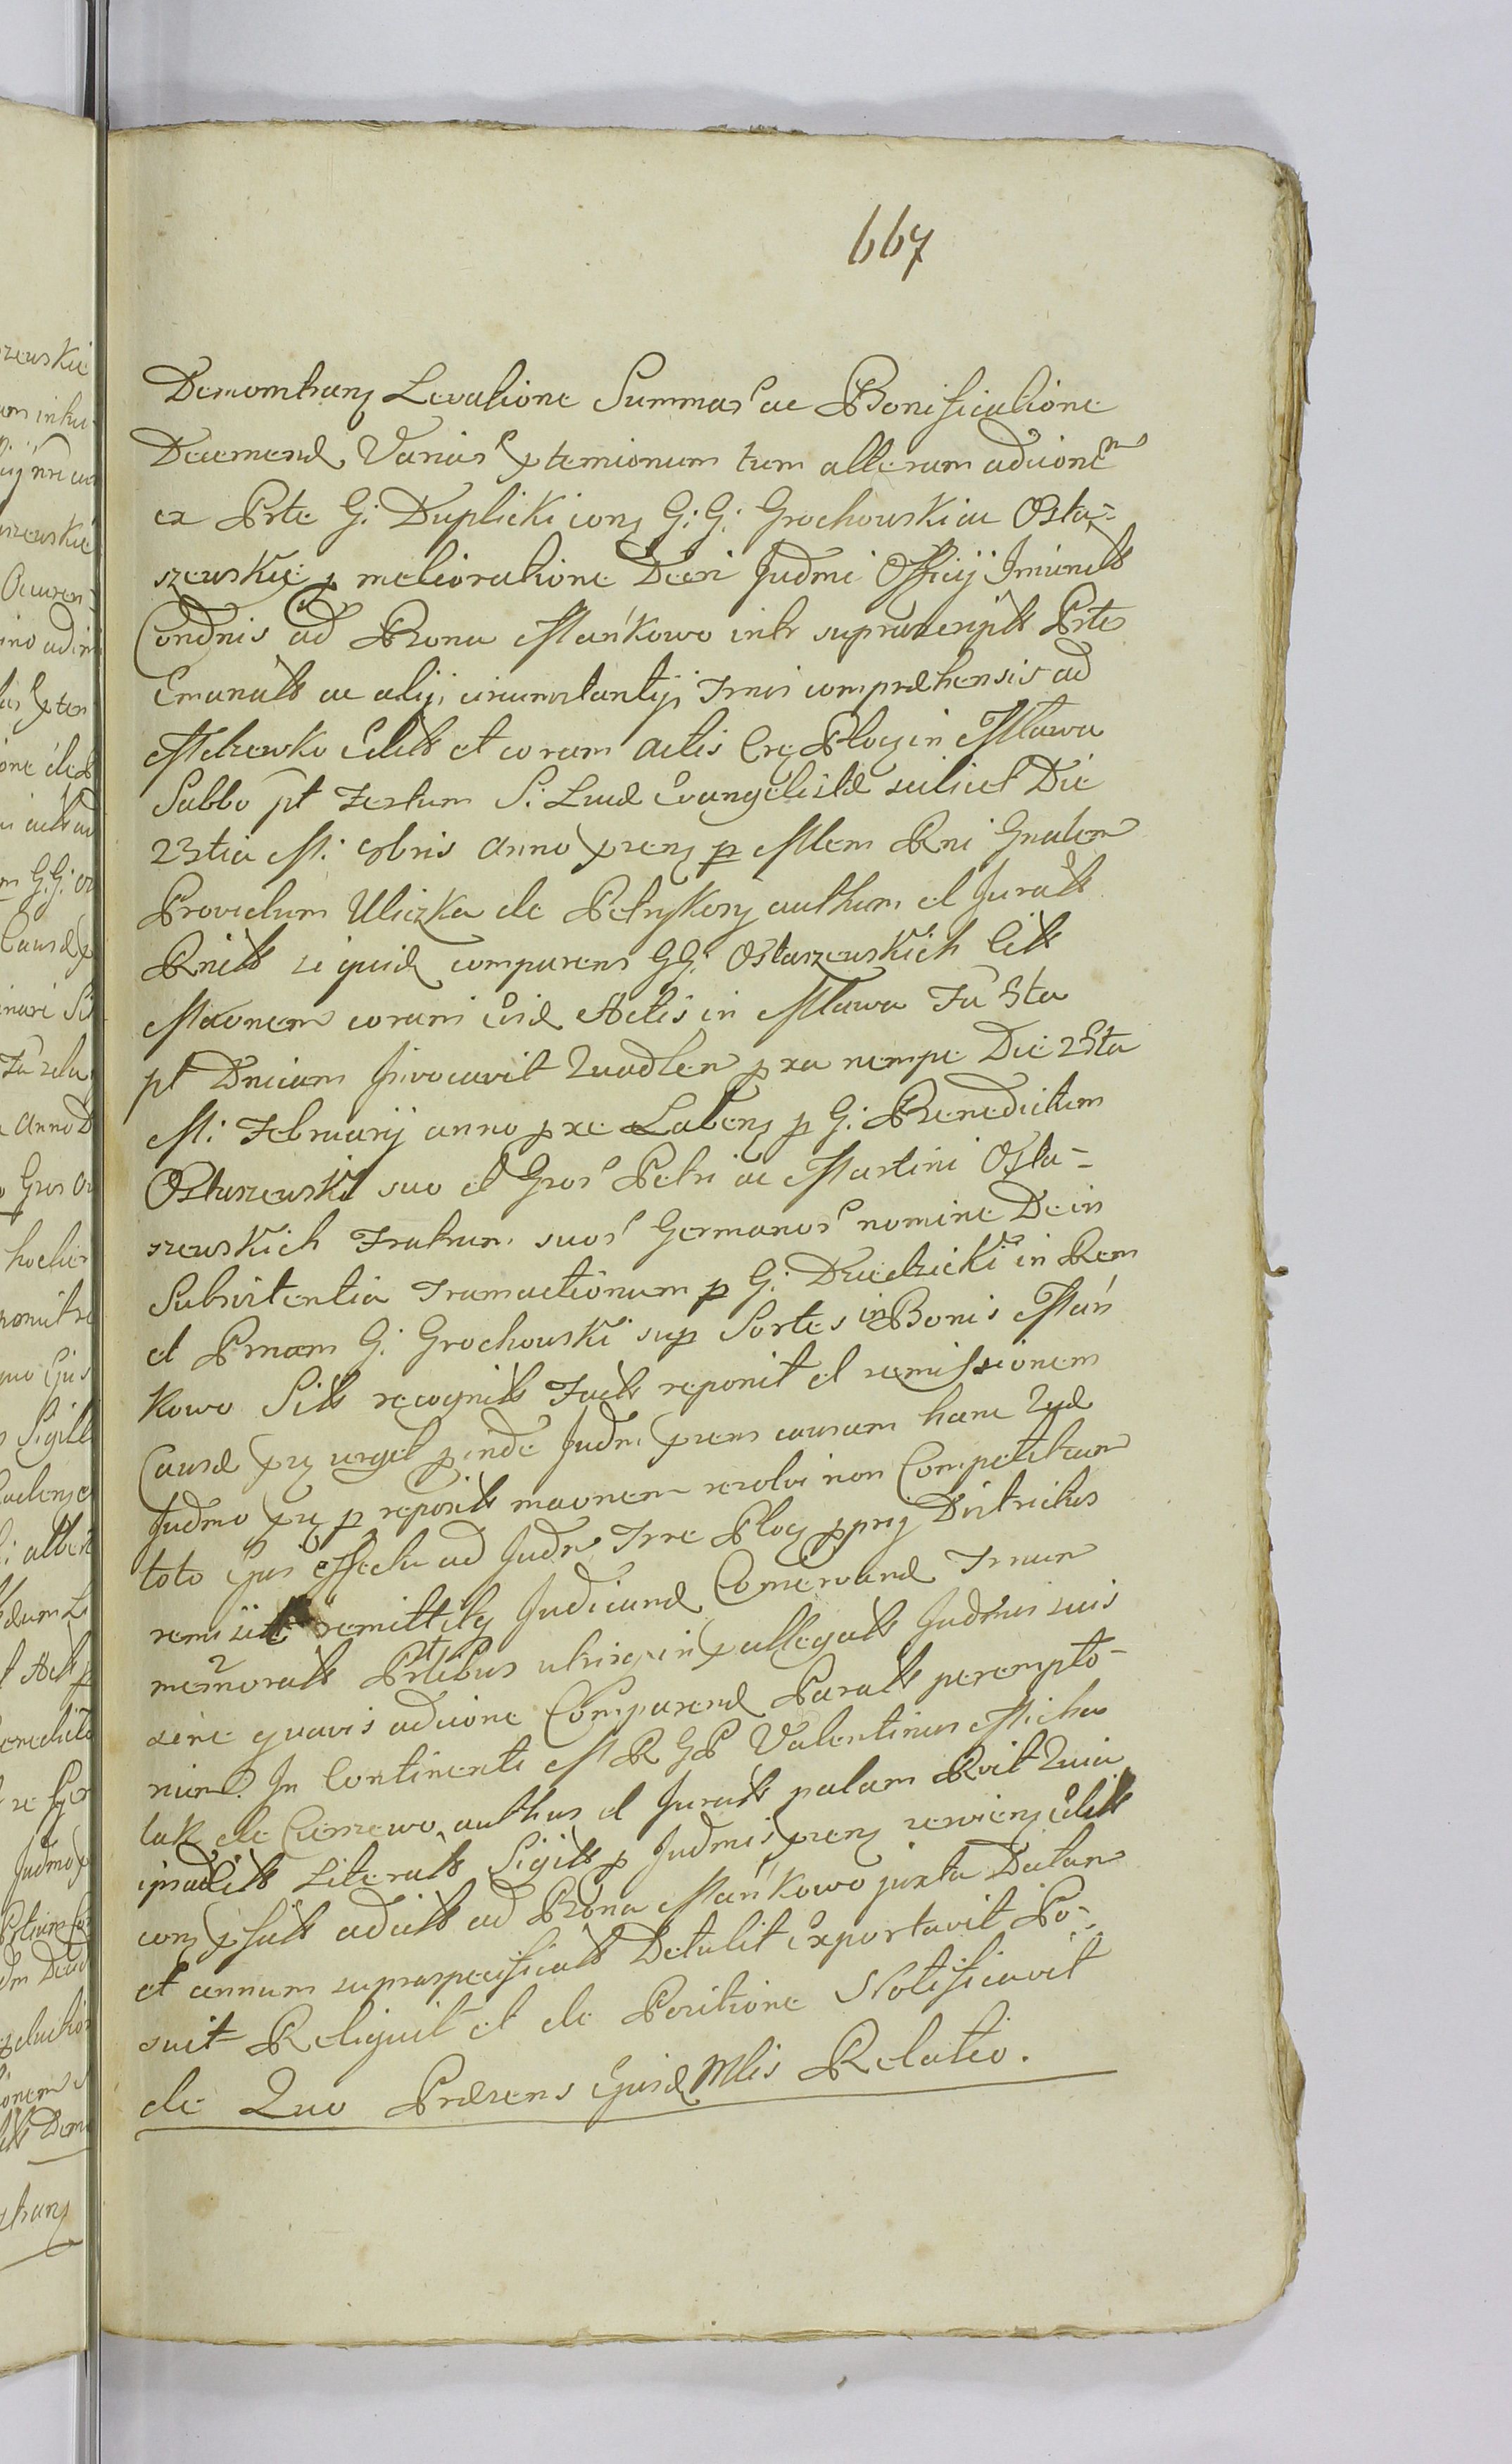 667
Demonstranĝ Levatione Summar ac Bonificatione
Decernend Varias ptensionum tum alteram adcionem
ex Prte G: Duplicki conĝ G: G: Grochowski ac Osta=
szewskie p melioratione Decri Judmi Officij
Condnis ad Bona Mańkowo intr suprascript Prtes
Emanat ac alijs circumstantijs Trnis comprehensis ad
Mdzewko Edit et coram Actis Crĝ Plocĝ in Mlawa
Sabbo pt Festum S: Lucæ Evangelistæ scilicet Die
23tia M: 8bris Anno prenĝ p Mlem Rni Gnalem
Providum Uliczka de Petrykozy authum et Jurat
Rnit siquid comparens GG: Ostaszewskich Cit
Maonem coram Eisd Actis in Mlawa Fa 5ta
pt Dnicam Jnvocavit Quadlem pxa nempe Die 25ta
M: Februarij anno pxe Labenĝ p G: Benedictum
Ostaszewski suo et Gros Petri ac Martini Osta=
szewskich Fratrum suor Germanor nomine De in
Subsistentia Transactionum p G: Dziedzicki in Rem
et Prnam G: Grochowski sup Sortes in Bonis Mań
kowo Sit recognit Fact reponit et remissionem
Causæ prĝ urget pinde Judm prens causam hanc
Judmo prĝ p reposit maonem resolvi non Competitam
toto Ejus effectu ad Judm Trre Ploc ppriĝ Districtus
remisit remittitq Judicand Conservand Trnum
memorat Prtibus utrisq in pallegat Judmis suis
sine quavis adcione Comparend Parat perempto=
rium. In Continenti M R G P Valentinus Micha
lak de Ciemzewo authus et Jurat palam Rvit Quia
ipsad Lit Literat Sigit p Judmis prenĝ serviens Edit
conĝ psat adcit ad Bona Mańkowo juxta Datam
et annum supraspecificat Detulit Exportavit Po=
suit Reliquit et de Positione Notificavit
de Quo Præsens Ejusd Mlis Relatio.